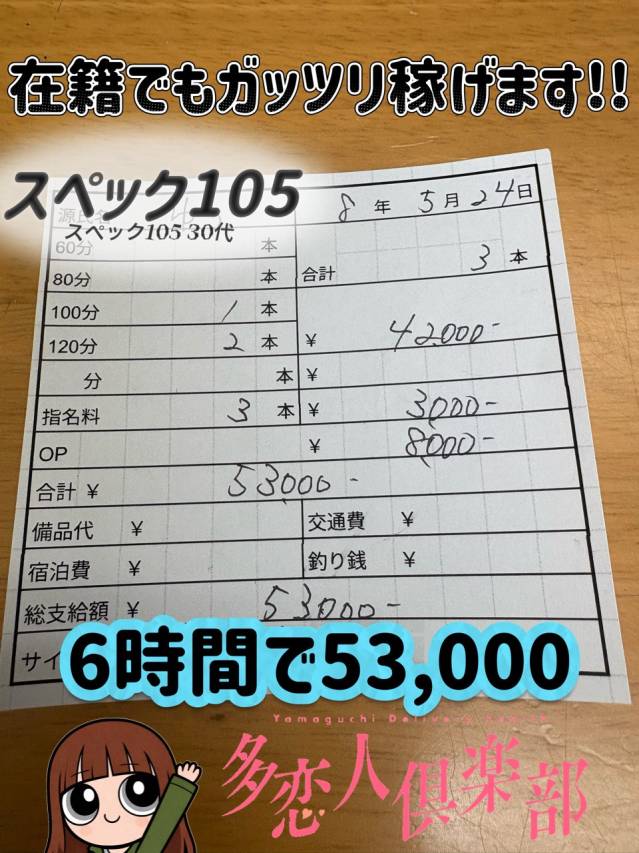 在籍でもガッツリ稼げます!!
スペック105
スペック105 30代
8年 5月 24日
60分 本
80分 本 合計 3本
100分 1本
120分 2本 ¥ 42,000-
分 本 ¥
指名料 3本 ¥ 3,000-
OP ¥ 8,000-
合計 ¥ 53,000-
備品代 ¥ 交通費 ¥
宿泊費 ¥ 釣り銭 ¥
総支給額 ¥ 53,000-
サイ
6時間で53,000
Yamaguchi Delivery
多恋人倶楽部